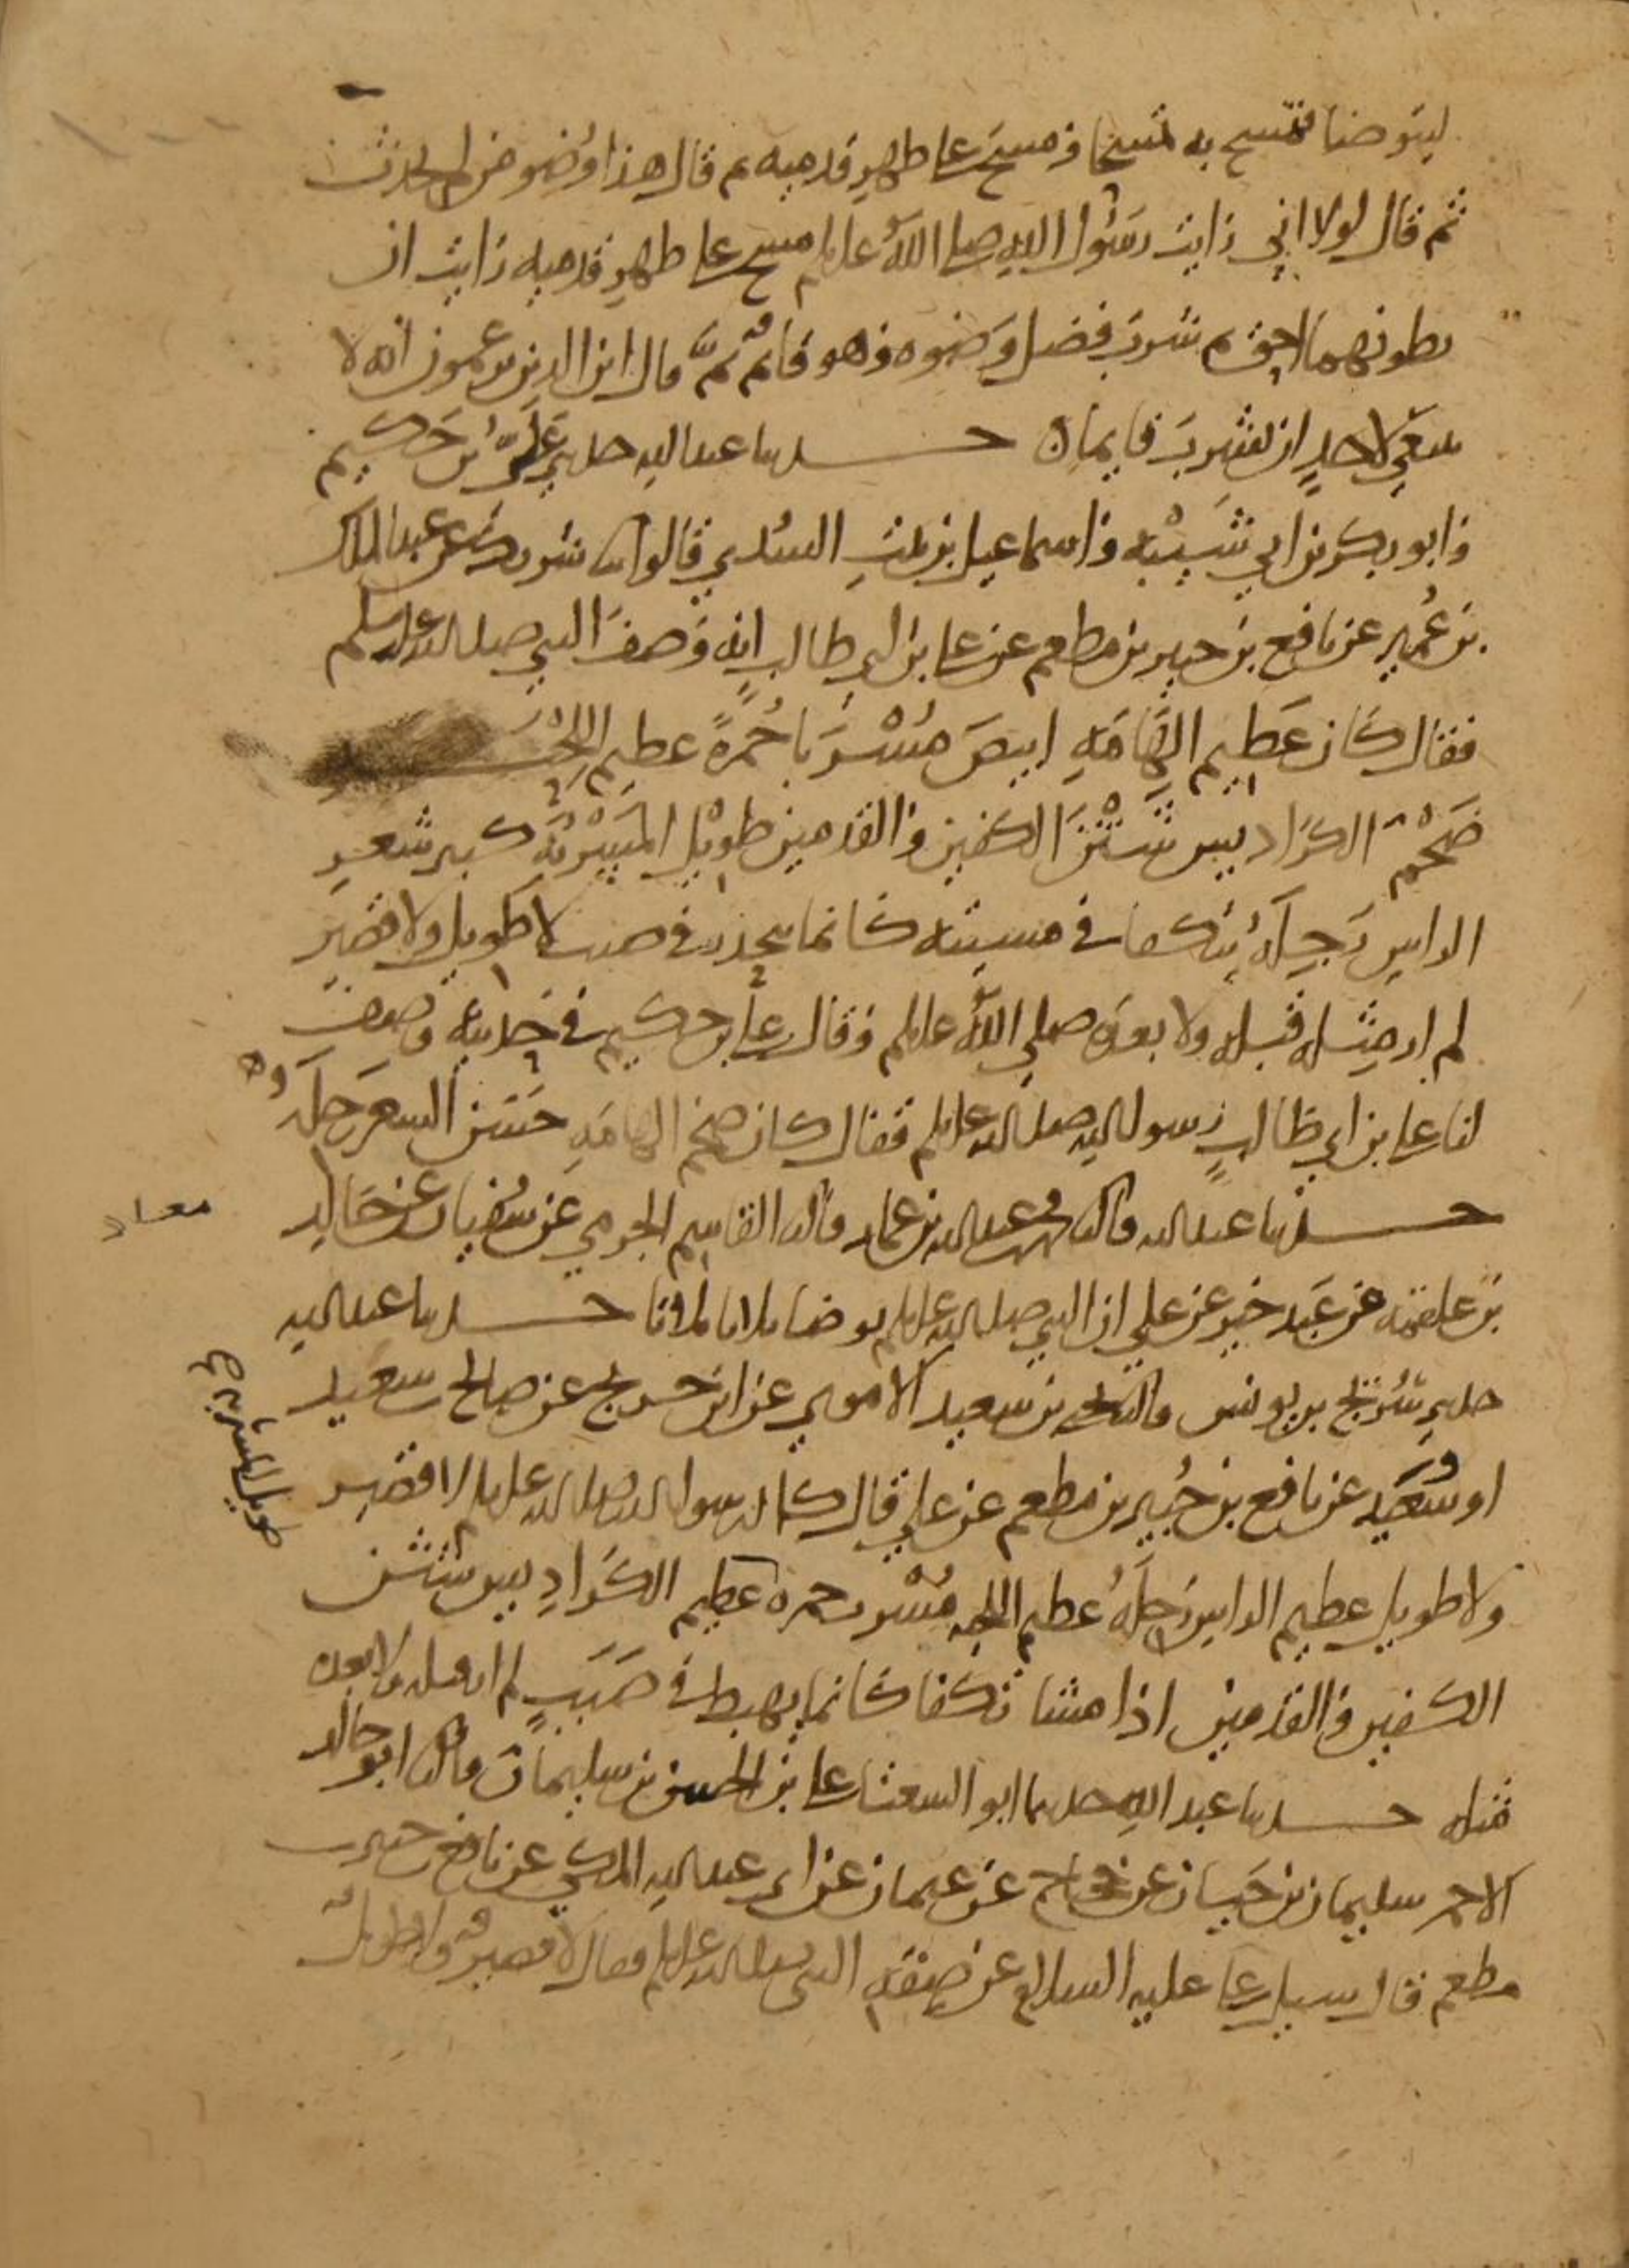 ليتوضا فتمسح به تمسحا ومسح على ظهر قدميه ثم قال هذا وضو من لم يحدث
ثم قال لولا اني رايت رسول الله صلى الله عليه وسلم مسح على ظهر قدميه رايت ان
بطونهما احق ثم شرب فضل وضوه وهو قائم ثم قال اين الذين يزعمون انه لا
ينبغي لاحد ان يشرب قايما ه حدثنا عبد الله حدثني علي بن حكيم
وابو بكر بن ابي شيبه واسماعيل بن بنت السدي قالوا انا شريك عن عبد الملك
بن عمير عن نافع بن جبير بن مطعم عن علي بن ابي طالب انه وصف النبي صلى الله عليه وسلم
فقال كان عظيم الهامه ابيض مشربا حمرة عظيم اللحيه
ضخم الكراديس شثن الكفين والقدمين طويل المسربه كثير شعر
الراس رجله يتكفا في مشيته كانما ينحدر في صبب لا طويل ولا قصير
لم ار مثله قبله ولا بعده صلى الله عليه وسلم وقال علي بن حكيم في حديثه وصف
لنا علي بن ابي طالب رسول الله صلى الله عليه وسلم فقال كان ضخم الهامه حسن الشعر رجله ه
حدثنا عبد الله قال حدثني عبد الله بن عمار قال نا القاسم الجرمي عن سفيان عن خالد
بن علقمه عن عبد خير عن علي ان النبي صلى الله عليه وسلم توضا ثلاثا ثلاثا حدثنا عبد الله
حدثني سريج بن يونس قال نا يحيى بن سعيد الاموي عن ابن جريج عن صالح بن سعيد
او سعيد عن نافع بن جبير بن مطعم عن علي قال كان رسول الله صلى الله عليه وسلم لا قصير
ولا طويل عظيم الراس رجله عظيم اللحيه مشرب حمره عظيم الكراديس شثن
الكفين والقدمين اذا مشا تكفا كانما يهبط في صبب لم ار مثله قبله ولا بعده
مثله حدثنا عبد الله حدثنا ابو الشعثا علي بن الحسن بن سليمان قال نا ابو خالد
الاحمر سليمان بن حيان عن حجاج عن عثمان عن ابي عبد الله المكي عن نافع بن جبير بن
مطعم قال سيل علي عليه السلام عن صفه النبي صلى الله عليه وسلم فقال لا قصير ولا طويل
طويل المسربه صح